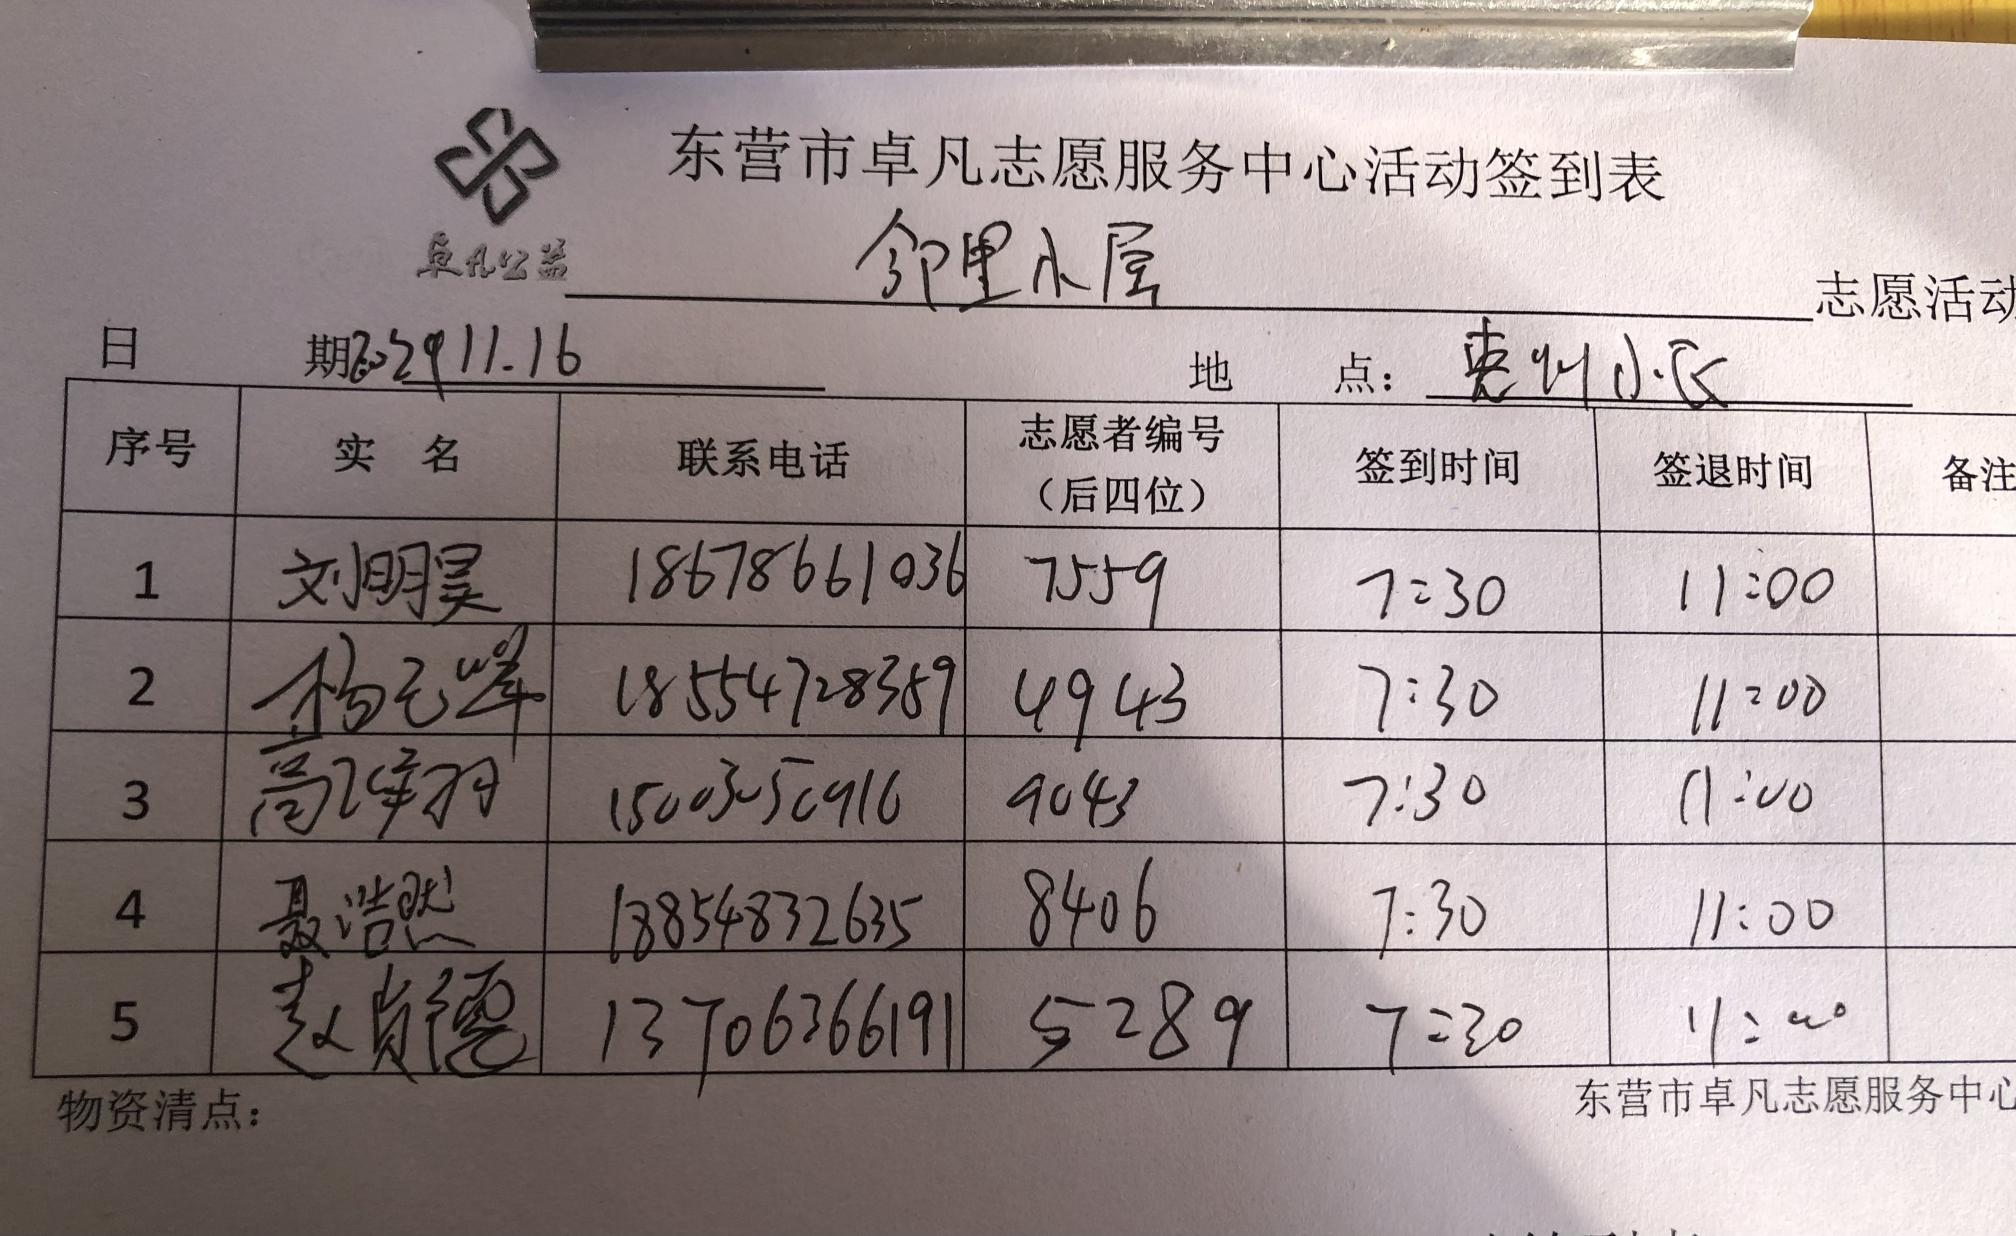 东营市卓凡志愿服务中心活动签到表
卓凡公益
邻里小屋 志愿活动
日 期 11.16 地 点：惠州小区
序号 实 名 联系电话 志愿者编号（后四位） 签到时间 签退时间 备注
1 刘明昊 18678661036 7559 7:30 11:00
2 杨元峰 18554728359 4943 7:30 11:00
3 高 羽 9043 7:30 11:00
4 聂浩然 18854832635 8406 7:30 11:00
5 赵肖德 13706366191 5289 7:30 11:00
物资清点： 东营市卓凡志愿服务中心